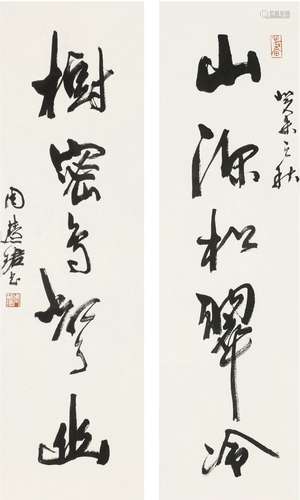 山深松翠冷
癸未之秋
樹密鳥聲幽
周慧珺書